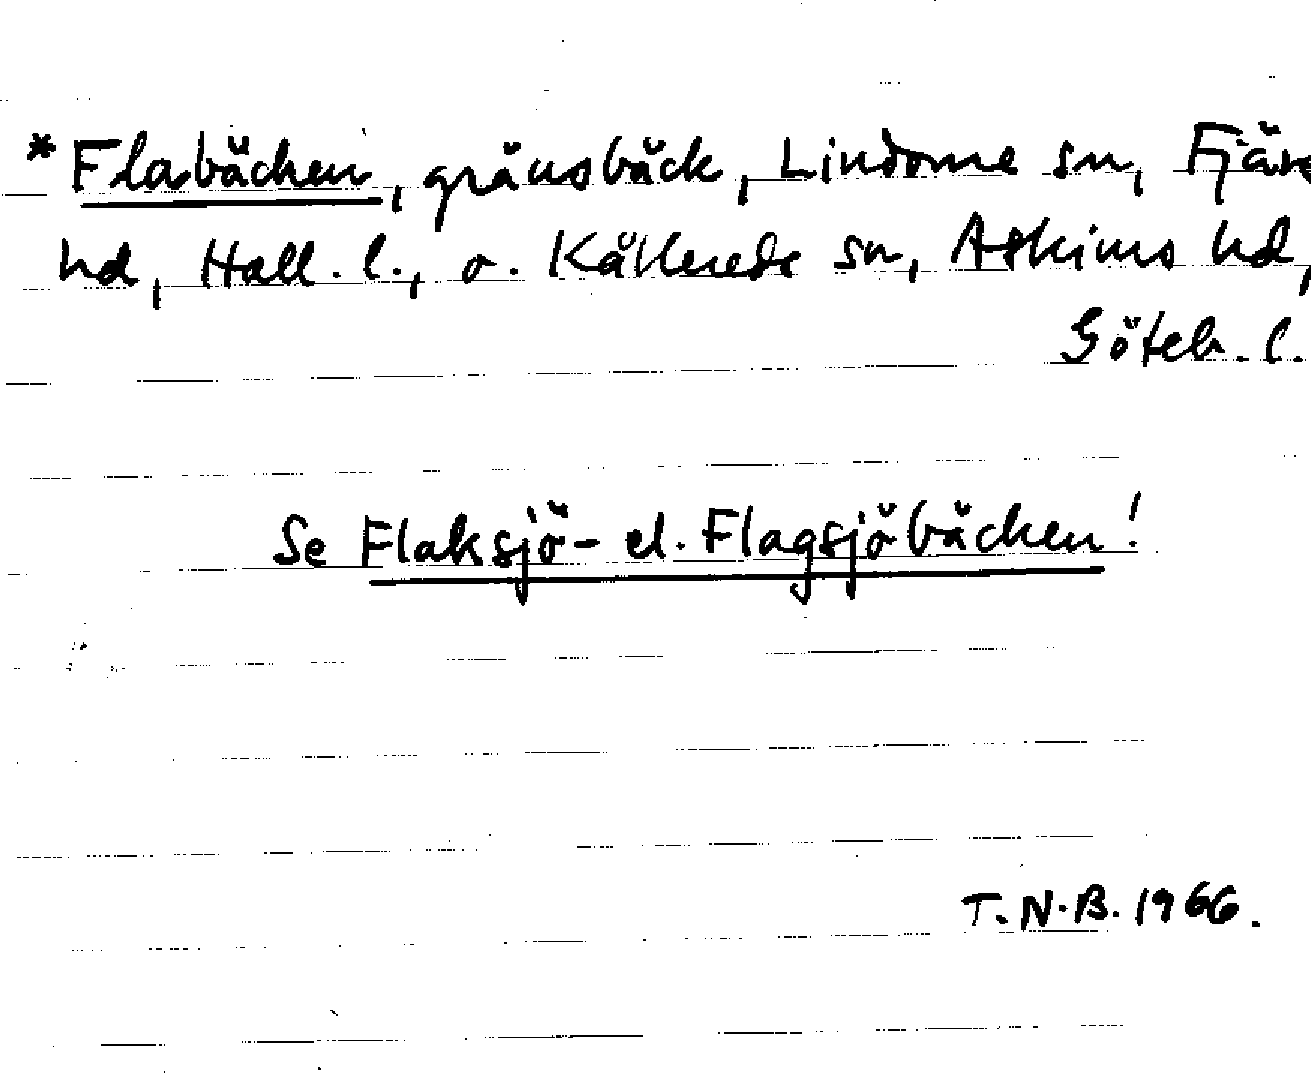 * Flabäcken, gränsbäck, Lindome sn, Fjäre
hd, Hall. l., o. Kållereds sn, Askims hd,
Göteb. l.
Se Flaksjö- el. Flagsjöbäcken!
T.N.B. 1966.